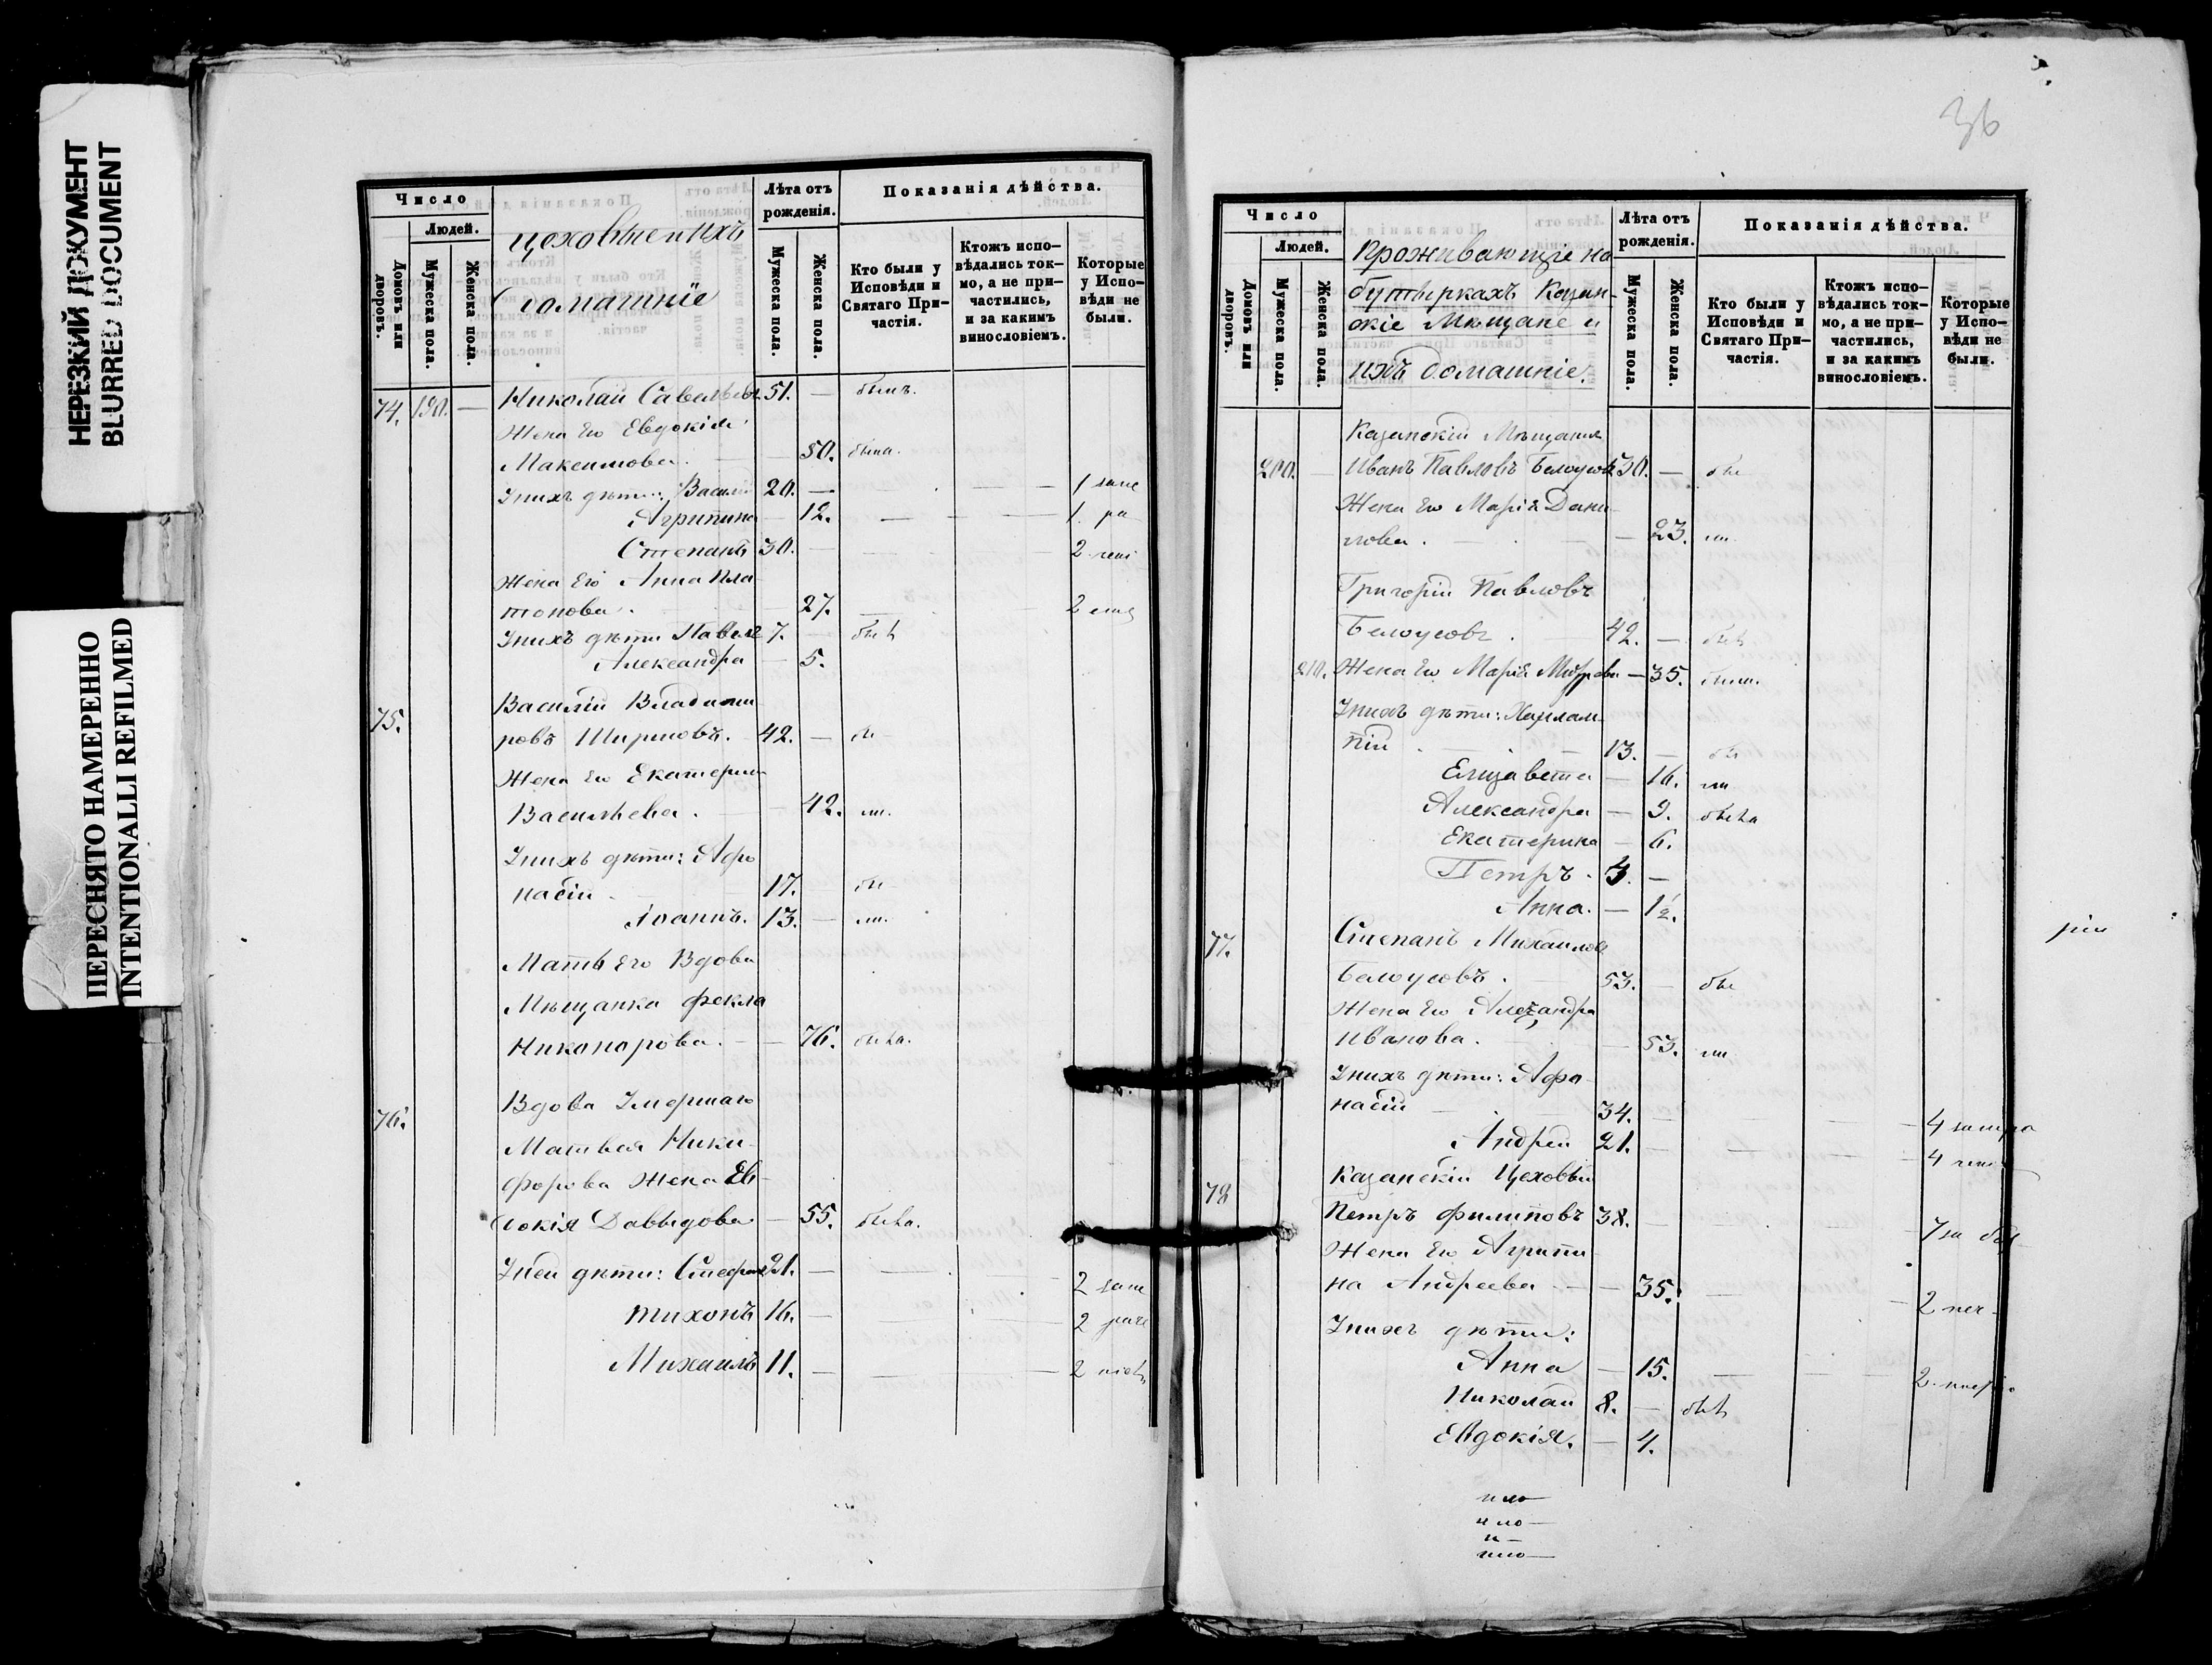 НЕРЕЗКИЙ ДОКУМЕНТ
BLURRED DOCUMENT
ПЕРЕСНЯТО НАМЕРЕННО
INTENTIONALLI REFILMED
Число
Людей.
Домовъ или дворовъ.
Мужеска пола.
Женска пола.
цеховые и ихъ
домашнiе
Лѣта отъ рожденiя.
Мужеска пола.
Женска пола.
Показанiя дѣйства.
Кто были у Исповѣди и Святаго Причастiя.
Ктожъ исповѣдались токмо, а не причастились, и за какимъ винословiемъ.
Которые у Исповѣди не были.
74. 190. — Николай Савельевъ 51. — былъ.
Жена Его Евдокiя
Максимова. 50. была.
У нихъ дѣти: Василiй 20. — 1
Агрипина 12. — 1.
Степанъ 30. — 2
Жена Его Анна Пла
тонова. 27. 2
У нихъ дѣти Павелъ 7. —
Александра — 5.
75. Василiй Владими
ровъ Ширшовъ. 42. —
Жена Его Екатерина
Васильева. 42.
У нихъ дѣти: Афо
насiй 17.
Iоаннъ. 13. —
Мать Его Вдова
Мѣщанка Фекла
Никонорова. — 76. была.
76. Вдова Умершаго
Матвея Ники-
форова Жена Ев-
докiя Давыдова — 55. была.
У ней дѣти: Стефанъ 21. — 2
Тихонъ 16. — 2
Михаилъ 11. — 2
36
Число
Людей.
Домовъ или дворовъ.
Мужеска пола.
Женска пола.
Проживающiе на
бутыркахъ Казан-
скiе Мѣщане и
ихъ домашнiе.
Лѣта отъ рожденiя.
Мужеска пола.
Женска пола.
Показанiя дѣйства.
Кто были у Исповѣди и Святаго Причастiя.
Ктожъ исповѣдались токмо, а не причастились, и за какимъ винословiемъ.
Которые у Исповѣди не были.
Казанскiй Мѣщанинъ
200. Иванъ Павловъ Белоусовъ 30. —
Жена Его Марiя Дани
лова. — 23.
Григорiй Павловъ
Белоусовъ. 42. —
210. Жена Его Марiя — 35. была.
У нихъ дѣти: Харлам-
пiй 13. —
Елизавета — 16.
Александра — 9. была
Екатерина — 6.
Петръ. 3. —
Анна. — 1½.
77. Степанъ Михайловъ
Белоусовъ. 53. —
Жена Его Александра
Иванова. 53.
У нихъ дѣти: Афо
насiй 34. — 4
Андрей 21. — 4
78 Казанскiй Цеховый
Петръ Филиповъ 38. — 7
Жена Его Агрипи
на Андреева — 35. 2
У нихъ дѣти:
Анна — 15. 2
Николай 8. —
Евдокiя. — 4.